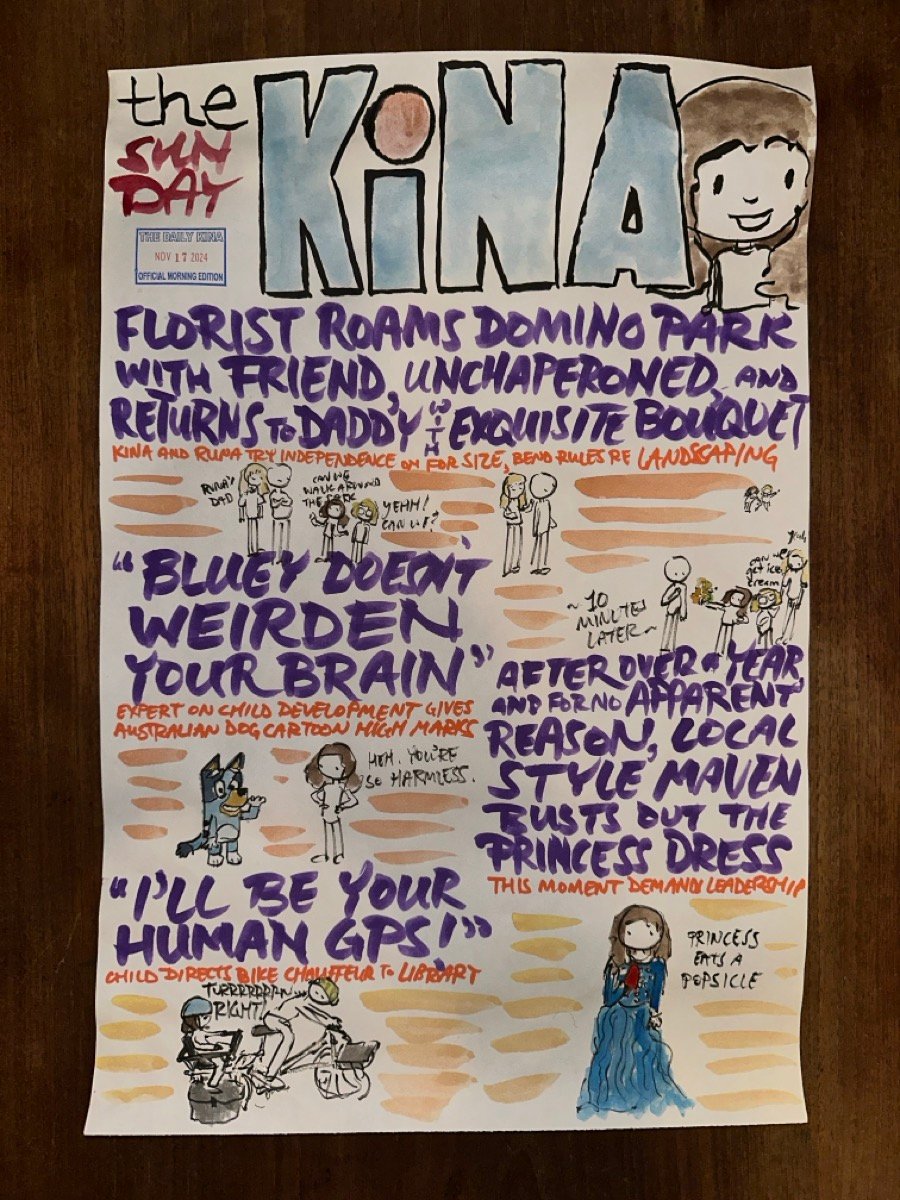 the
SUN
DAY
KiNA
THE DAILY KINA
NOV 17 2024
OFFICIAL MORNING EDITION
FLORIST ROAMS DOMINO PARK
WITH FRIEND, UNCHAPERONED, AND
RETURNS TO DADDY WITH EXQUISITE BOUQUET
KINA AND RUMA TRY INDEPENDENCE ON FOR SIZE, BEND RULES RE LANDSCAPING
RUMA'S
DAD
CAN WE
WALK AROUND
THE PARK
YEHH!
CAN WE?
~ 10
MINUTES
LATER ~
can we
get ice
cream
Yeah
"BLUEY DOESN'T
WEIRDEN
YOUR BRAIN"
EXPERT ON CHILD DEVELOPMENT GIVES
AUSTRALIAN DOG CARTOON HIGH MARKS
HEH. YOU'RE
SO HARMLESS.
AFTER OVER A YEAR,
AND FOR NO APPARENT
REASON, LOCAL
STYLE MAVEN
BUSTS OUT THE
PRINCESS DRESS
THIS MOMENT DEMANDS LEADERSHIP
PRINCESS
EATS A
POPSICLE
"I'LL BE YOUR
HUMAN GPS!"
CHILD DIRECTS BIKE CHAUFFEUR TO LIBRARY
TURRRRRRRN...
RIGHT!